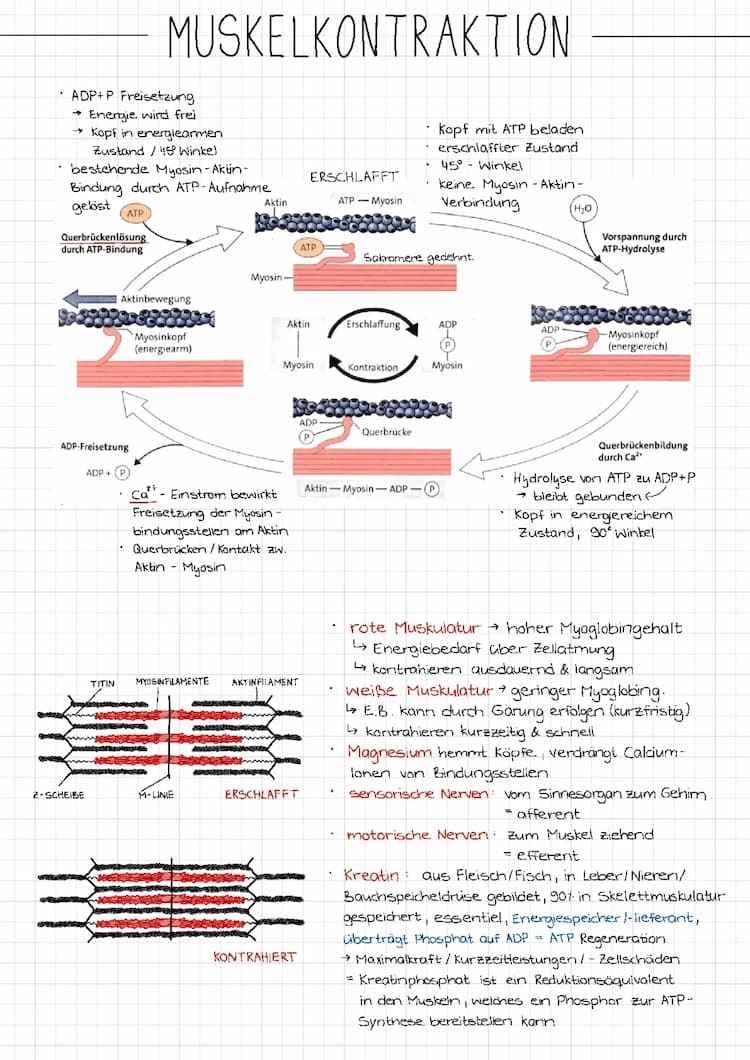 MUSKELKONTRAKTION
· ADP+P Freisetzung
→ Energie wird frei
→ Kopf in energiearmen
Zustand / 45° Winkel
· bestehende Myosin-Aktin-
Bindung durch ATP-Aufnahme
gelöst
· Kopf mit ATP beladen
· erschlaffter Zustand
· 45° - Winkel
· keine Myosin-Aktin-
Verbindung
ERSCHLAFFT
Aktin
ATP — Myosin
ATP
H₂O
Querbrückenlösung
durch ATP-Bindung
Vorspannung durch
ATP-Hydrolyse
ATP
Sakromere gedehnt
Myosin
Aktinbewegung
Myosinkopf
(energiearm)
Aktin
Myosin
Erschlaffung
Kontraktion
ADP
P
Myosin
ADP
P
Myosinkopf
(energiereich)
ADP
P
Querbrücke
Aktin — Myosin — ADP — P
ADP-Freisetzung
ADP + P
Querbrückenbildung
durch Ca²⁺
· Ca²⁺ - Einstrom bewirkt
Freisetzung der Myosin-
bindungsstellen am Aktin
· Querbrücken / Kontakt zw.
Aktin - Myosin
· Hydrolyse von ATP zu ADP+P
→ bleibt gebunden
· Kopf in energiereichem
Zustand, 90° Winkel
TITIN
MYOSINFILAMENTE
AKTINFILAMENT
Z-SCHEIBE
M-LINIE
ERSCHLAFFT
KONTRAHIERT
· rote Muskulatur → hoher Myoglobingehalt
↳ Energiebedarf über Zellatmung
↳ kontrahieren ausdauernd & langsam
· weiße Muskulatur → geringer Myoglobing.
↳ E.B. kann durch Gärung erfolgen (kurzfristig)
↳ kontrahieren kurzzeitig & schnell
· Magnesium hemmt Köpfe, verdrängt Calcium-
Ionen von Bindungsstellen
· sensorische Nerven: vom Sinnesorgan zum Gehirn
= afferent
· motorische Nerven: zum Muskel ziehend
= efferent
· Kreatin: aus Fleisch/Fisch, in Leber/Nieren/
Bauchspeicheldrüse gebildet, 90% in Skelettmuskulatur
gespeichert, essentiel, Energiespeicher/-lieferant,
überträgt Phosphat auf ADP = ATP Regeneration
→ Maximalkraft / Kurzzeitleistungen / - Zellschäden
= Kreatinphosphat ist ein Reduktionsäquivalent
in den Muskeln, welches ein Phosphor zur ATP-
Synthese bereitstellen kann